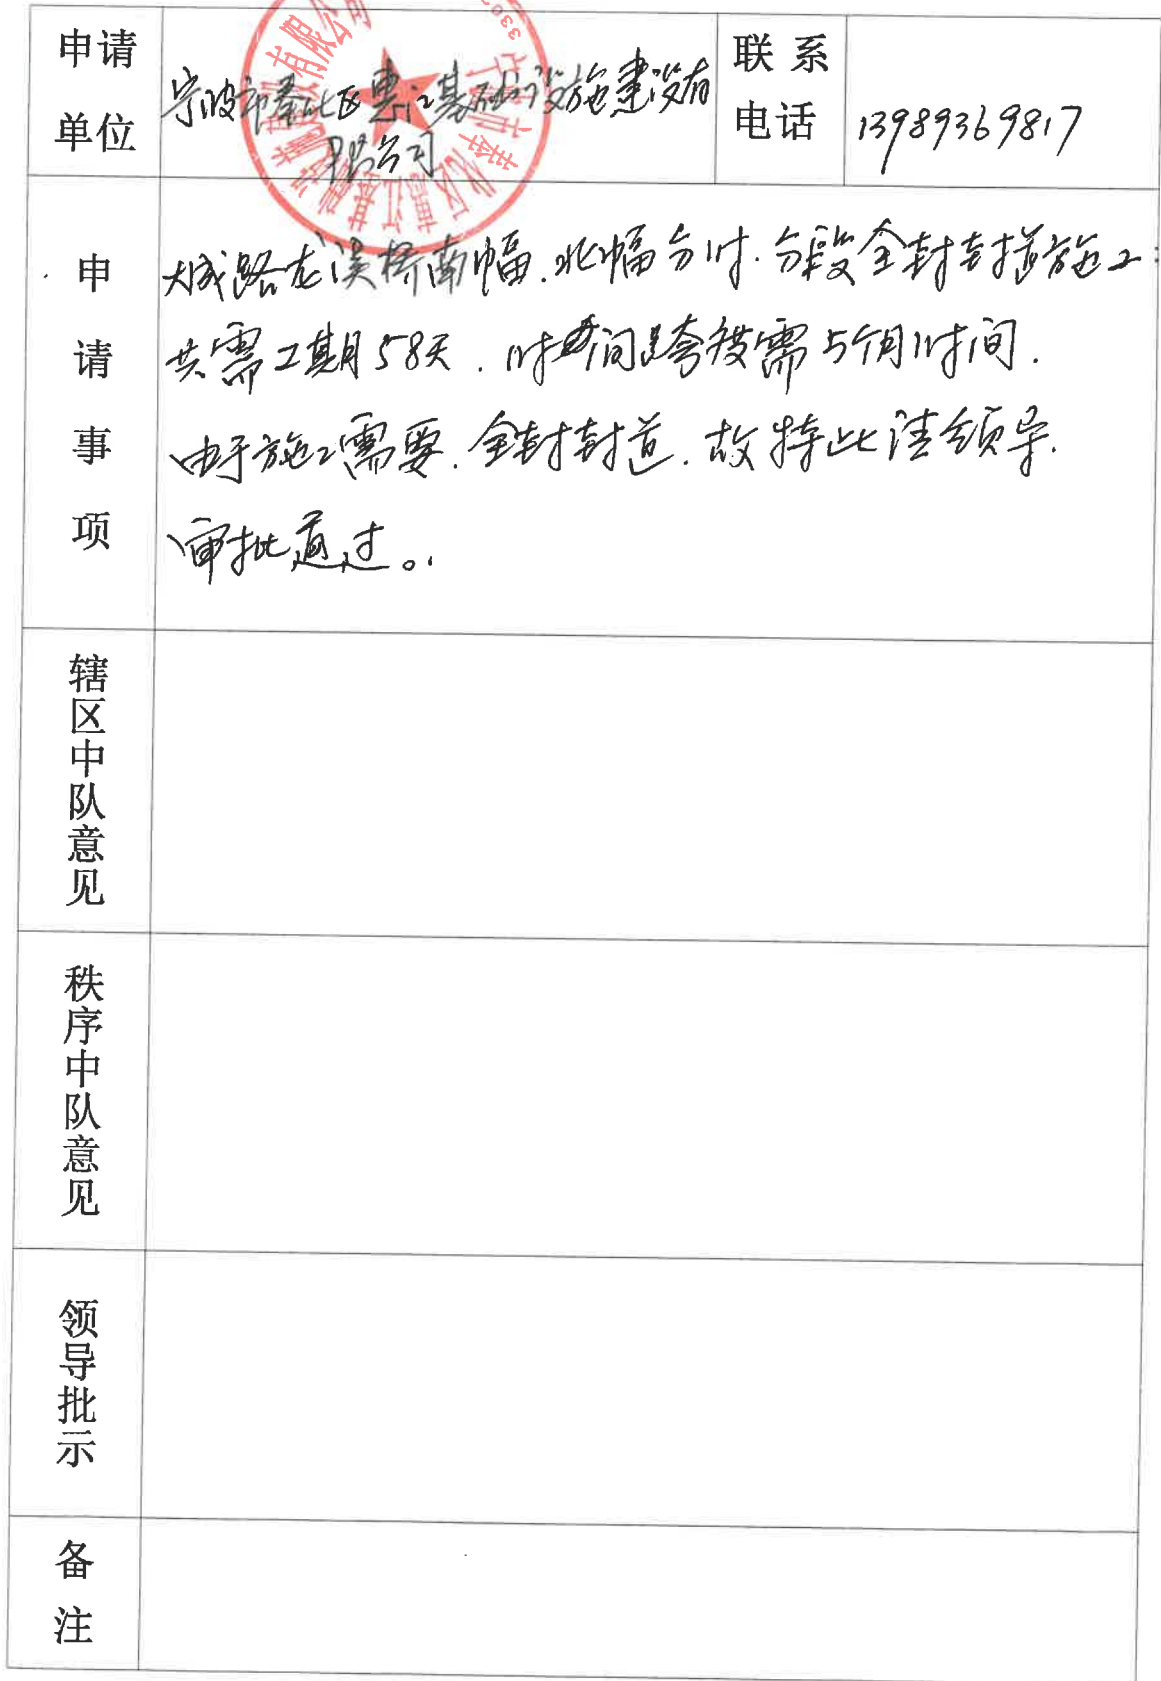 申请单位
宁波市奉化区惠江基础设施建设有
限公司
联系电话
13989369817
申请事项
大成路龙溪桥南幅、北幅分时、分段全封封道施工:
共需工期58天，时间跨度需5个月时间.
由于施工需要，全封封道，故特此请领导.
审批通过。
辖区中队意见
秩序中队意见
领导批示
备注